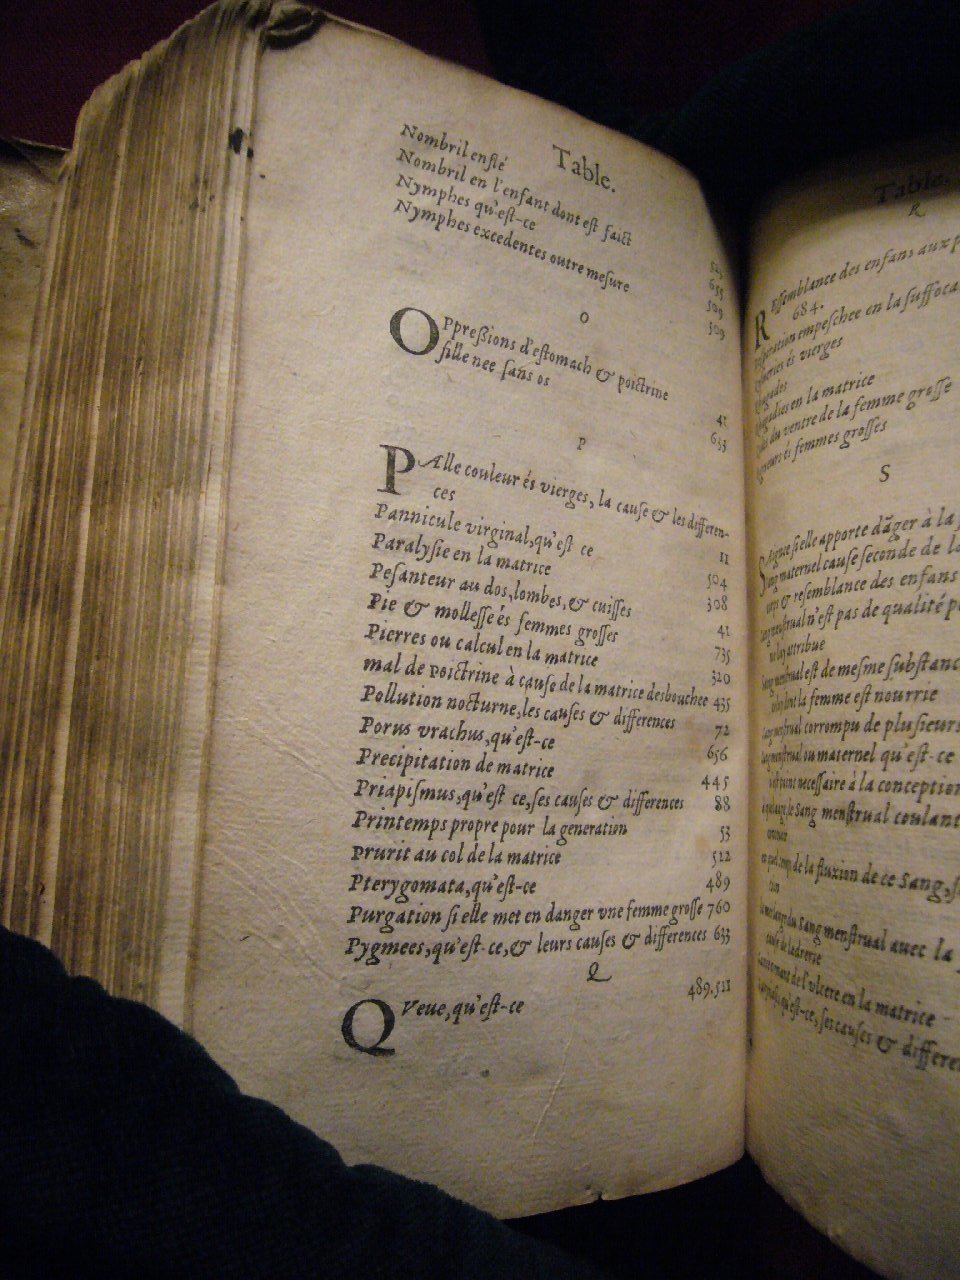 Table.
Nombril enflé 525
Nombril en l'enfant dont est faict 655
Nymphes qu'est-ce 509
Nymphes excedentes outre mesure 509
O
OPpreßions d'estomach & poictrine 41
fille nee sans os 653
P
PAlle couleur és vierges, la cause & les differen-
ces 11
Pannicule virginal, qu'est ce 504
Paralysie en la matrice 308
Pesanteur au dos, lombes, & cuisses 41
Pie & mollesse és femmes grosses 735
Pierres ou calcul en la matrice 320
mal de poictrine à cause de la matrice desbouchee 435
Pollution nocturne, les causes & differences 72
Porus vrachus, qu'est-ce 656
Precipitation de matrice 445
Priapismus, qu'est ce, ses causes & differences 88
Printemps propre pour la generation 53
Prurit au col de la matrice 512
Pterygomata, qu'est-ce 489
Purgation si elle met en danger vne femme grosse 760
Pygmees, qu'est-ce, & leurs causes & differences 633
Q
QVeue, qu'est-ce 489.511
Table.
R
REssemblance des enfans aux
684.
empeschee en la suffoca
és vierges
en la matrice
du ventre de la femme grosse
és femmes grosses
S
si elle apporte dãger à la
maternel cause seconde de la
& resemblance des enfans
n'est pas de qualité
attribue
est de mesme substanc
dont la femme est nourrie
menstrual corrompu de plusieurs
menstrual ou maternel qu'est-ce
necessaire à la conception
le sang menstrual coulant
de la fluxion de ce sang,
du sang menstrual auec la
cause de ladrerie
de l'vlcere en la matrice
qu'est-ce, ses causes & differen